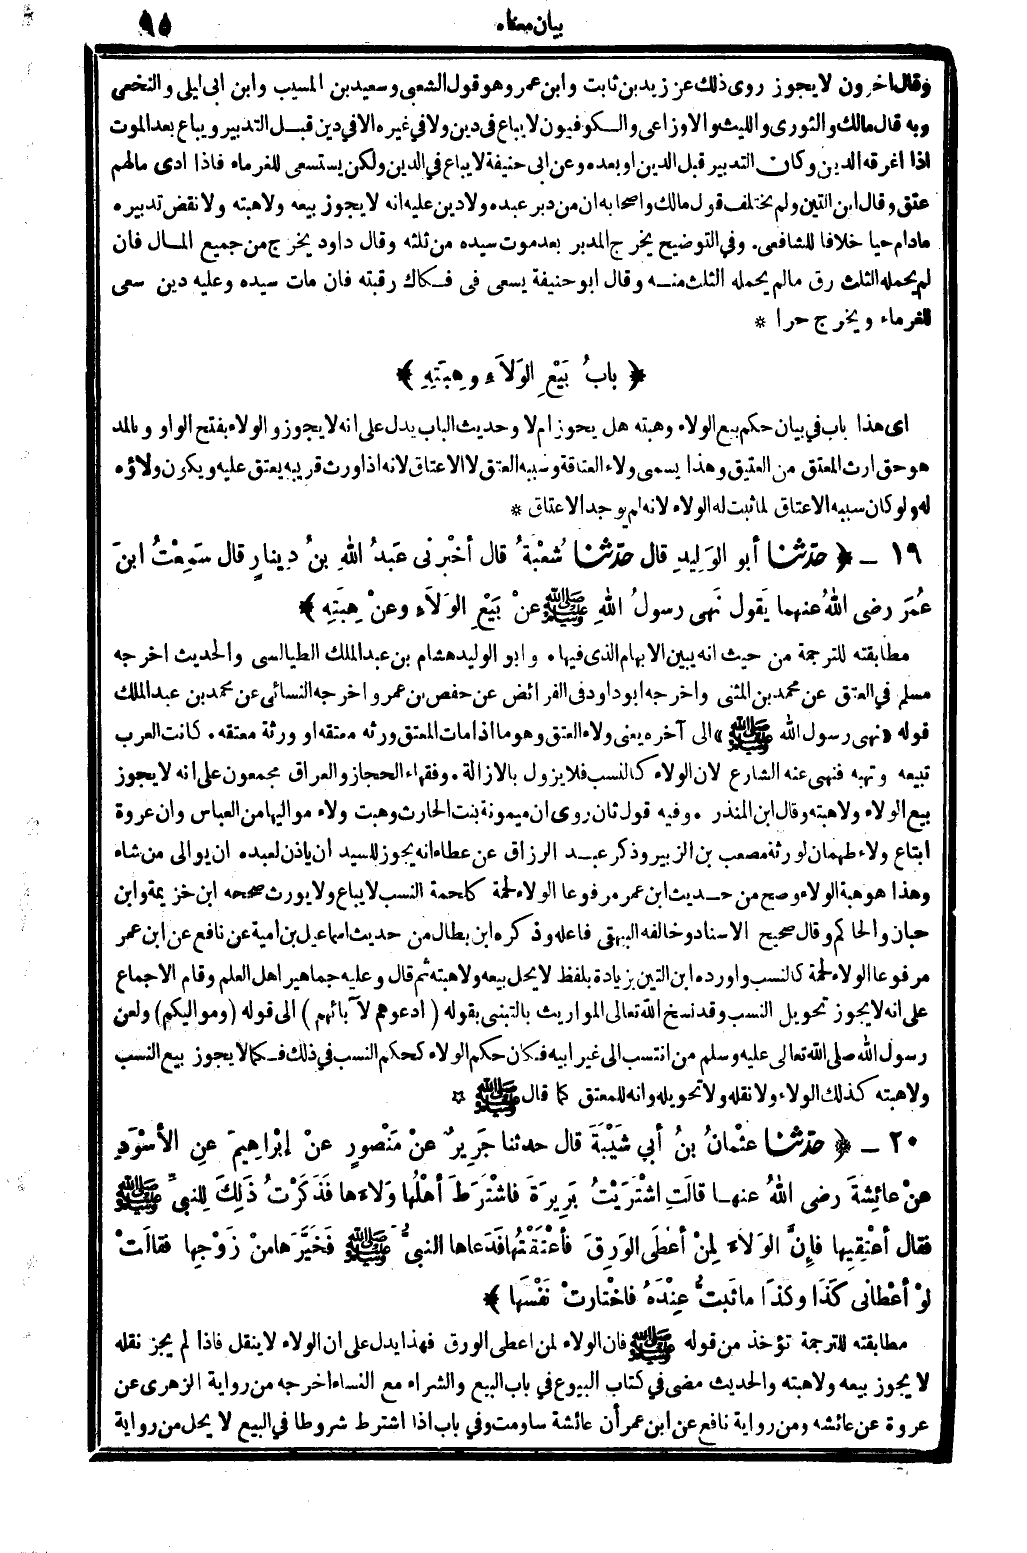 بيان معناه ٩٥
وقال اخرون لا يجوز روى ذلك عن زيد بن ثابت وابن عمر وهو قول الشعبى وسعيد بن المسيب وابن ابى ليلى والنخعى
وبه قال مالك والثورى والليث والاوزاعى والكوفيون لا يباع فى دين ولا فى غيره الا فى دين قبل التدبير ويباع بعد الموت
اذا اغرقه الدين وكان التدبير قبل الدين او بعده وعن ابى حنيفة لا يباع في الدين ولكن يستسعى للغرماء فاذا ادى مالهم
عتق وقال ابن التين ولم يختلف قول مالك واصحابه ان من دبر عبده ولا دين عليه انه لا يجوز بيعه ولا هبته ولا نقض تدبيره
مادام حيا خلافا للشافعى. وفي التوضيح يخرج المدبر بعد موت سيده من ثلثه وقال داود يخرج من جميع المال فان
لم يحمله الثلث رق مالم يحمله الثلث منه وقال ابو حنيفة يسعى فى فكاك رقبته فان مات سيده وعليه دين سعى
للغرماء ويخرج حرا *
﴿ بابُ بَيْعِ الوَلَاَءِ وهِبَتِهِ ﴾
اى هذا باب في بيان حكم بيع الولاء وهبته هل يجوز ام لا وحديث الباب يدل على انه لا يجوز والولاء بفتح الواو وبالمد
هو حق ارث المعتق من العتيق وهذا يسمى ولاء العتاقة وسببه العتق لا الاعتاق لانه اذا ورث قريبه يعتق عليه ويكون ولاؤه
له ولو كان سببه الاعتاق لما ثبت له الولاء لانه لم يوجد الاعتاق *
١٩ ــ ﴿ حدّثنا أبو الوَليدِ قال حدّثنا شُعْبَةُ قال أخْبرنى عَبدُ اللهِ بنُ دِينارٍ قال سَمِعْتُ ابنَ
عُمَرَ رضى اللهُ عنهما يَقول نَهى رسولُ اللهِ ﷺ عنْ بَيْعِ الوَلاَءِ وعنْ هِبَتِهِ ﴾
مطابقته للترجمة من حيث انه يبين الابهام الذى فيها. وابو الوليد هشام بن عبد الملك الطيالسى والحديث اخرجه
مسلم في العتق عن محمد بن المثنى واخرجه ابو داود فى الفرائض عن حفص بن عمر واخرجه النسائى عن محمد بن عبد الملك
قوله «نهى رسول الله ﷺ» الى آخره يعنى ولاء العتق وهو ما اذا مات المعتق ورثه معتقه او ورثة معتقه. كانت العرب
تبيعه وتهبه فنهى عنه الشارع لان الولاء كالنسب فلا يزول بالازالة. وفقهاء الحجاز والعراق مجمعون على انه لا يجوز
بيع الولاء ولا هبته وقال ابن المنذر . وفيه قول ثان روى ان ميمونة بنت الحارث وهبت ولاء مواليها من العباس وان عروة
ابتاع ولاء طهمان لورثة مصعب بن الزبير وذكر عبد الرزاق عن عطاء انه يجوز للسيد ان ياذن لعبده ان يوالى من شاء
وهذا هو هبة الولاء وصح من حديث ابن عمر مرفوعا الولاء لحمة كلحمة النسب لا يباع ولا يورث صححه ابن خزيمة وابن
حبان والحاكم وقال صحيح الاسناد وخالفه البيهقى فاعله وذكره ابن بطال من حديث اسماعيل بن امية عن نافع عن ابن عمر
مرفوعا الولاء لحمة كالنسب واورده ابن التين بزيادة بلفظ لا يحل بيعه ولا هبته ثم قال وعليه جماهير اهل العلم وقام الاجماع
على انه لا يجوز تحويل النسب وقد نسخ الله تعالى المواريث بالتبنى بقوله (ادعوهم لآبائهم) الى قوله (ومواليكم) ولعن
رسول الله صلى الله تعالى عليه وسلم من انتسب الى غير ابيه فكان حكم الولاء كحكم النسب في ذلك فكما لا يجوز بيع النسب
ولا هبته كذلك الولاء ولا نقله ولا تحويله وانه للمعتق كما قال ﷺ *
٢٠ ــ ﴿ حدّثنا عثْمانُ بنُ أبي شَيْبَةَ قال حدثنا جَرِيرٌ عنْ مَنْصورٍ عنْ إبْراهِيمَ عنِ الأسْوَدِ
عنْ عائِشةَ رضى اللهُ عنها قالَتِ اشْتَرَيْتُ بَرِيرَةَ فاشْتَرَطَ أهْلُها وَلاءَها فَذَكَرْتُ ذَلِكَ لِلنبيِّ ﷺ
فقال أعْتِقِيها فإنَّ الوَلاَءَ لِمنْ أعْطَى الوَرِقَ فأعْتَقْتُها فَدَعاها النبيُّ ﷺ فَخَيَّرَها منْ زَوْجِها فقالَتْ
لوْ أعْطانى كَذَا وكَذَا ما ثَبتُّ عِنْدَهُ فاخْتارتْ نَفْسَها ﴾
مطابقته للترجمة تؤخذ من قوله ﷺ فان الولاء لمن اعطى الورق فهذا يدل على ان الولاء لا ينقل فاذا لم يجز نقله
لا يجوز بيعه ولا هبته والحديث مضى في كتاب البيوع في باب البيع والشراء مع النساء اخرجه من رواية الزهرى عن
عروة عن عائشه ومن رواية نافع عن ابن عمر أن عائشة ساومت وفي باب اذا اشترط شروطا في البيع لا يحل من رواية